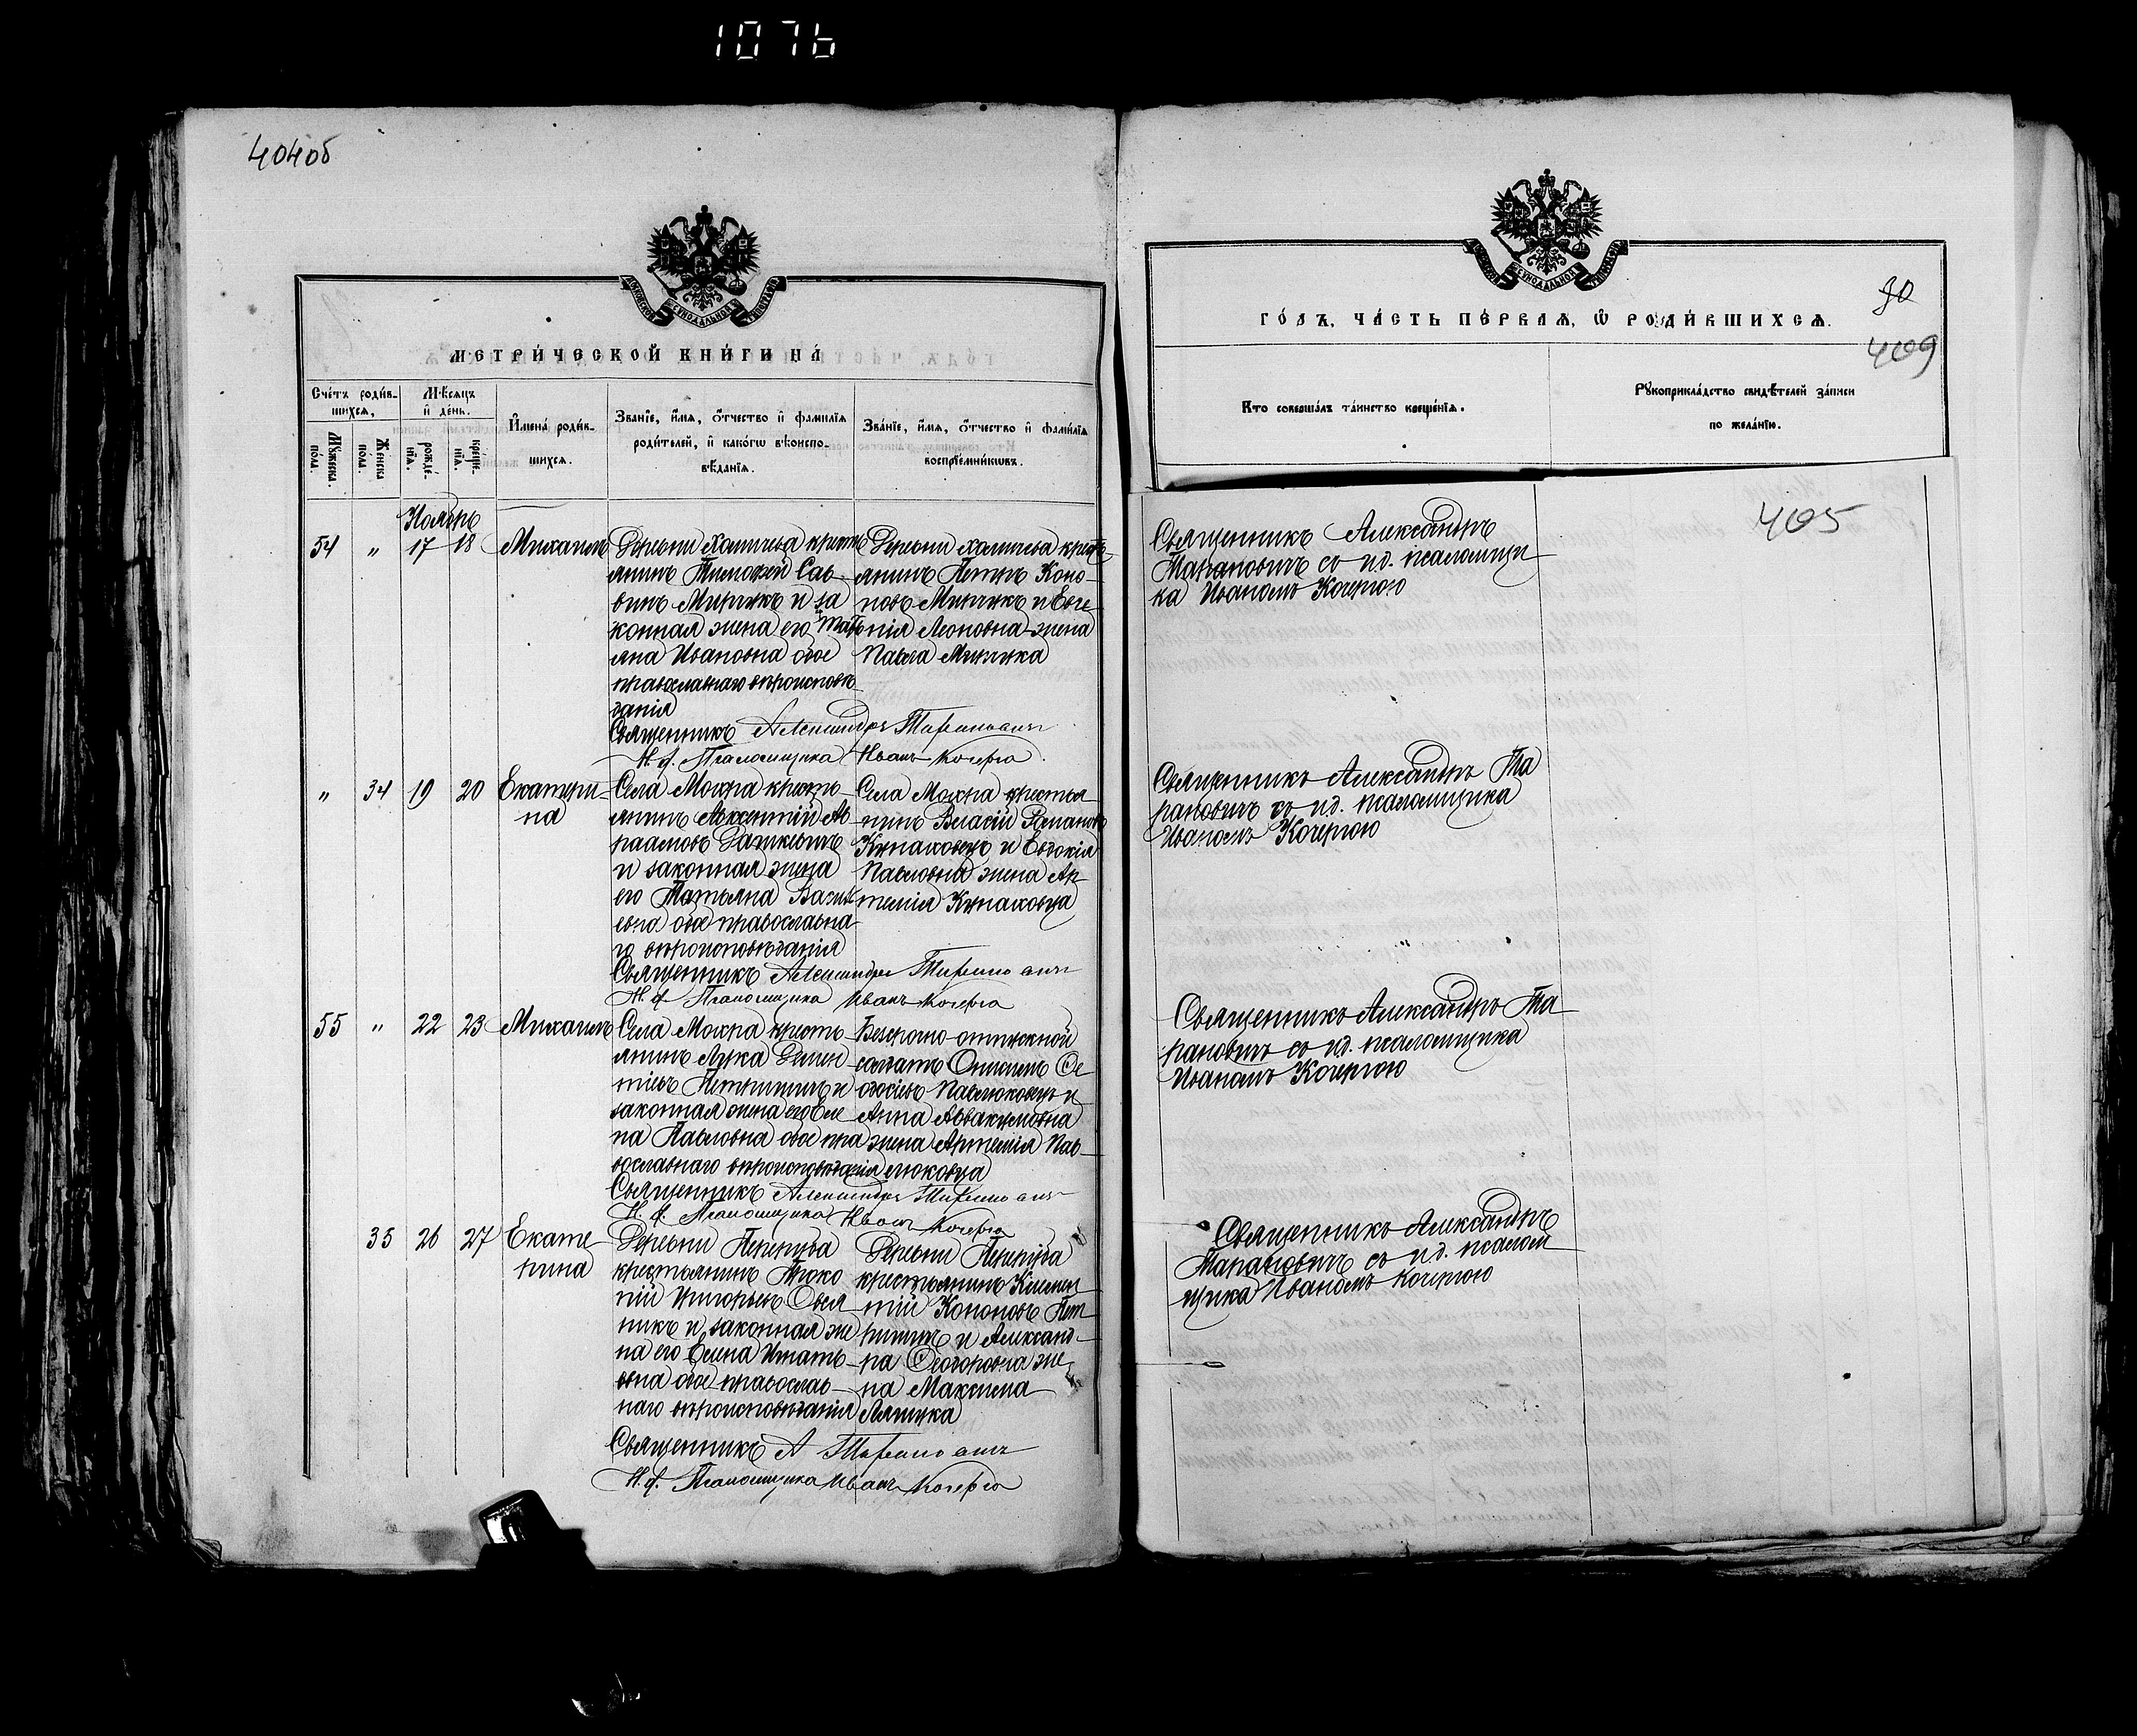 1076
404об
МЕТРИЧЕСКОЙ КНИГИ НА
Счетъ родив-
шихся,
Мѣсяцъ
и день.
Мужеска
пола.
Женска
пола.
рожде-
нія.
креще-
нія.
Имена родив-
шихся.
Званіе, имя, отчество и фамилія
родителей, и какого вѣроиспо-
вѣданія.
Званіе, имя, отчество и фамилія
воспріемниковъ.
Ноябрь
54 „ 17 18 Михаилъ
Деревни Халичева крестья
янинъ Тимофей Сав-
винъ Мирчукъ и за
конная жена его Тать
яна Ивановна обое
православнаго вѣроисповѣ
данія
Деревни Халичева кресть
янинъ Петръ Коно-
новъ Мирчукъ и Евге
нія Леоновна жена
Павла Мирчука
Священникъ Александръ Таранович
И. д. Псаломщика Иванъ Кочерга
„ 34 19 20 Екатери-
на
Села Мохра кресть-
янинъ Авксентій Ав-
раамовъ Дашкевичъ
и законная жена
его Татьяна Василь
евна обое православна-
го вѣроисповѣданія
Села Мохра крестья
нинъ Власій Романовъ
Кунаховецъ и Евдокія
Павловна жена Ар-
темія Кунаховца
Священникъ Александръ Таранович
И. д. Псаломщика Иванъ Кочерга
55 „ 22 23 Михаилъ
Села Мохра кресть-
янинъ Лука Демен
тіевъ Петришинъ и
законная жена его Еле
на Павловна обое пра
вославнаго вѣроисповѣданія
Безсрочно-отпускной
солдатъ Онисимъ Ѳе
одосіевъ Павлюковецъ и
Анна Аввакумовна
жена Артемія Пав-
люковца
Священникъ Александръ Таранович
И. д. Псаломщика Иванъ Кочерга
35 26 27 Екате
рина
Деревни Переруба
крестьянинъ Проко
пій Григорьевъ Овся
никъ и законная же
на его Елена Игнать-
евна обое православ-
наго вѣроисповѣданія
Деревни Переруба
крестьянинъ Климен
тій Кононовъ Пет
ришинъ и Александ-
ра Ѳеодоровна же
на Максима
Ляшука
Священникъ А Таранович
И. д. Псаломщика Иванъ Кочерга
ГОДЪ, ЧАСТЬ ПЕРВАЯ, Ѡ РОДИВШИХСЯ.
30
409
Кто совершалъ таинство крещенія.
Рукоприкладство свидѣтелей записи
по желанію.
405
Священникъ Александръ
Тарановичъ съ и.д. псаломщи
ка Иваномъ Кочергою
Священникъ Александръ Та
рановичъ съ и.д. псаломщика
Иваномъ Кочергою
Священникъ Александръ Та
рановичъ съ и.д. псаломщика
Иваномъ Кочергою
Священникъ Александръ
Тарановичъ съ и.д. псалом
щика Иваномъ Кочергою